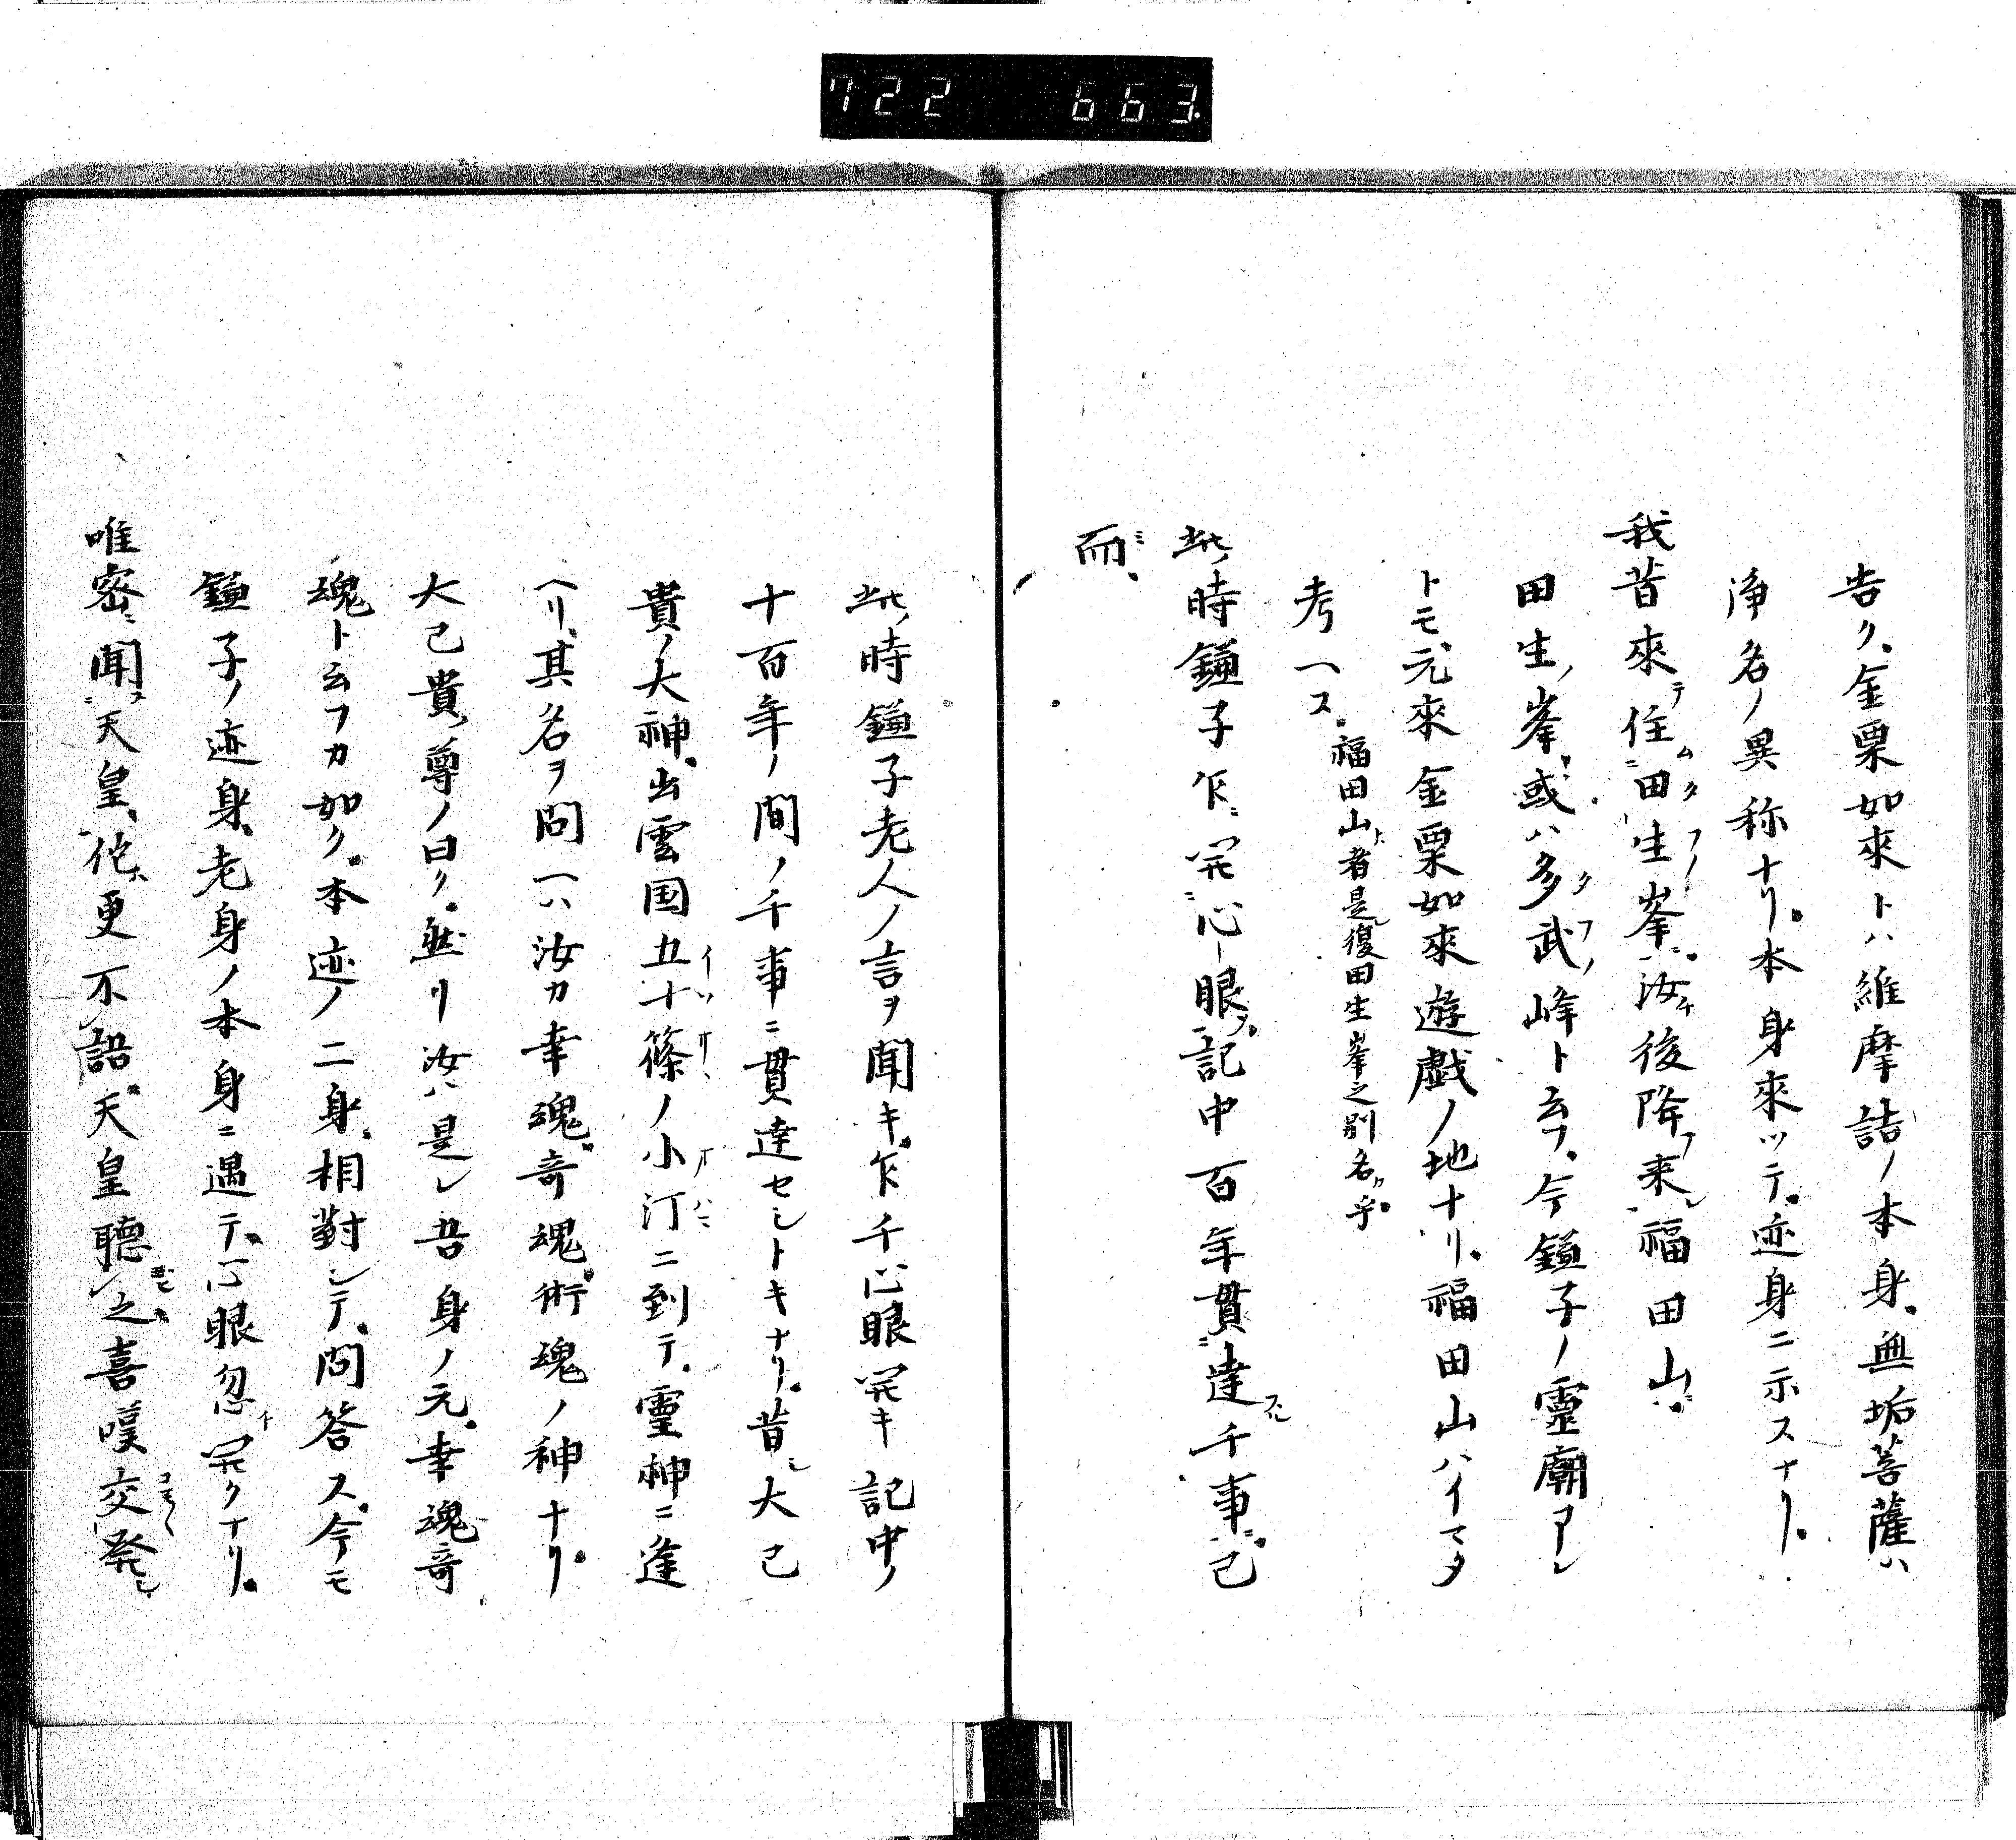 722 663
告ク、金粟如來トハ維摩詰ノ本身、無垢菩薩ハ
淨名ノ異称ナリ。本身來ツテ、迹身ニ示スナリ。
我昔來テ住ム田生峯ニ。汝チ後降フ来レ福田山ニ。
田生ノ峯、或ハ多武ノ峰ト云フ。今鎰子ノ靈廟アレ
トモ、元來金粟如來遊戯ノ地ナリ。福田山ハイマタ
考ヘス。福田山ト者是レ復田生峯之別名カ乎。
此ノ時鎰子乍ニ開心眼ヲ、記中百年貫達フル千事ニ。己
而ミ。
此ノ時鎰子老人ノ言ヲ聞キ、乍千心眼開キ記中ノ
十百年ノ間ノ千事ニ貫達セシトキナリ。昔シ大己
貴ノ大神、出雲国五十篠ノ小汀ニ到テ、靈神ニ逢
ヘリ、其名ヲ問ヘハ汝カ幸魂、奇魂、術魂ノ神ナリ。
大己貴ノ尊ノ曰ク、然リ汝ハ是レ吾身ノ元、幸魂奇
魂ト云フカ如ク、本迹ノ二身、相對シテ、問答ス。今モ
鎰子ノ迹身、老身ノ本身ニ遇テ、心眼忽チ開クナリ。
唯密ニ聞ス天皇、佗ニ更不語。天皇聽之喜嘆交発シ